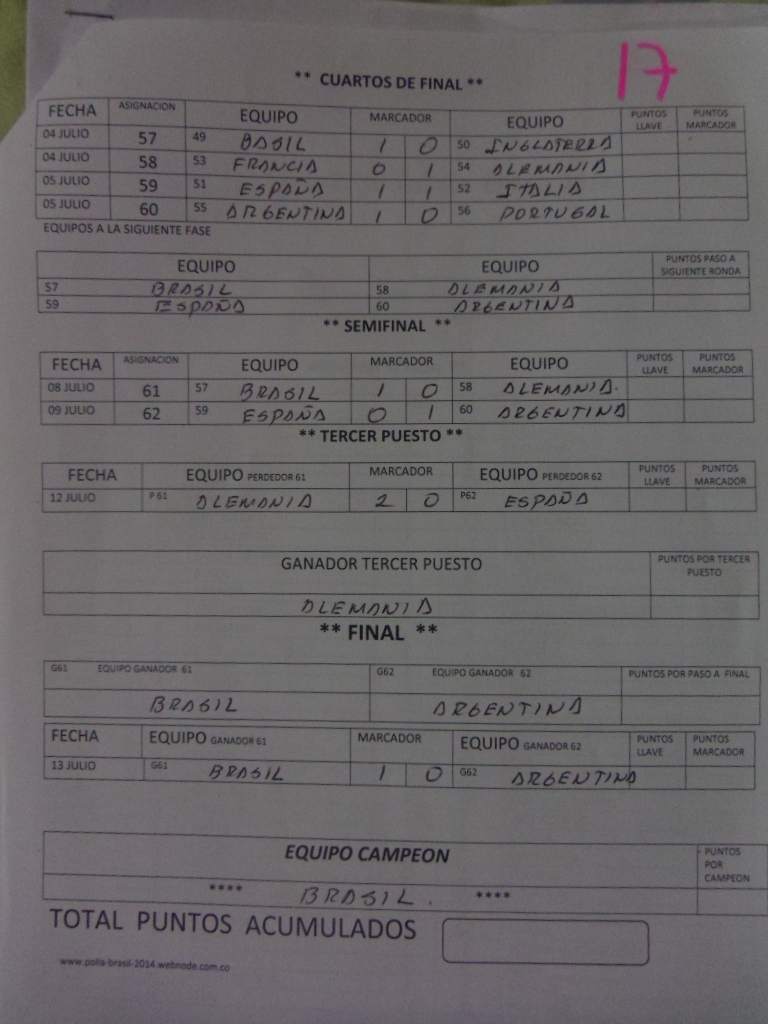 17
** CUARTOS DE FINAL **
FECHA ASIGNACION EQUIPO MARCADOR EQUIPO PUNTOS LLAVE PUNTOS MARCADOR
04 JULIO 57 49 BASIL 1 0 50 INGLATERRA
04 JULIO 58 53 FRANCIA 0 1 54 ALEMANIA
05 JULIO 59 51 ESPAÑA 1 1 52 ITALIA
05 JULIO 60 55 ARGENTINA 1 0 56 PORTUGAL
EQUIPOS A LA SIGUIENTE FASE
EQUIPO EQUIPO PUNTOS PASO A SIGUIENTE RONDA
57 BRASIL 58 ALEMANIA
59 ESPAÑA 60 ARGENTINA
** SEMIFINAL **
FECHA ASIGNACION EQUIPO MARCADOR EQUIPO PUNTOS LLAVE PUNTOS MARCADOR
08 JULIO 61 57 BRASIL 1 0 58 ALEMANIA.
09 JULIO 62 59 ESPAÑA 0 1 60 ARGENTINA
** TERCER PUESTO **
FECHA EQUIPO PERDEDOR 61 MARCADOR EQUIPO PERDEDOR 62 PUNTOS LLAVE PUNTOS MARCADOR
12 JULIO P 61 ALEMANIA 2 0 P62 ESPAÑA
GANADOR TERCER PUESTO PUNTOS POR TERCER PUESTO
ALEMANIA
** FINAL **
G61 EQUIPO GANADOR 61 G62 EQUIPO GANADOR 62 PUNTOS POR PASO A FINAL
BRASIL ARGENTINA
FECHA EQUIPO GANADOR 61 MARCADOR EQUIPO GANADOR 62 PUNTOS LLAVE PUNTOS MARCADOR
13 JULIO G61 BRASIL 1 0 G62 ARGENTINA
EQUIPO CAMPEON PUNTOS POR CAMPEON
**** BRASIL. ****
TOTAL PUNTOS ACUMULADOS
www.polla-brasil-2014.webnode.com.co